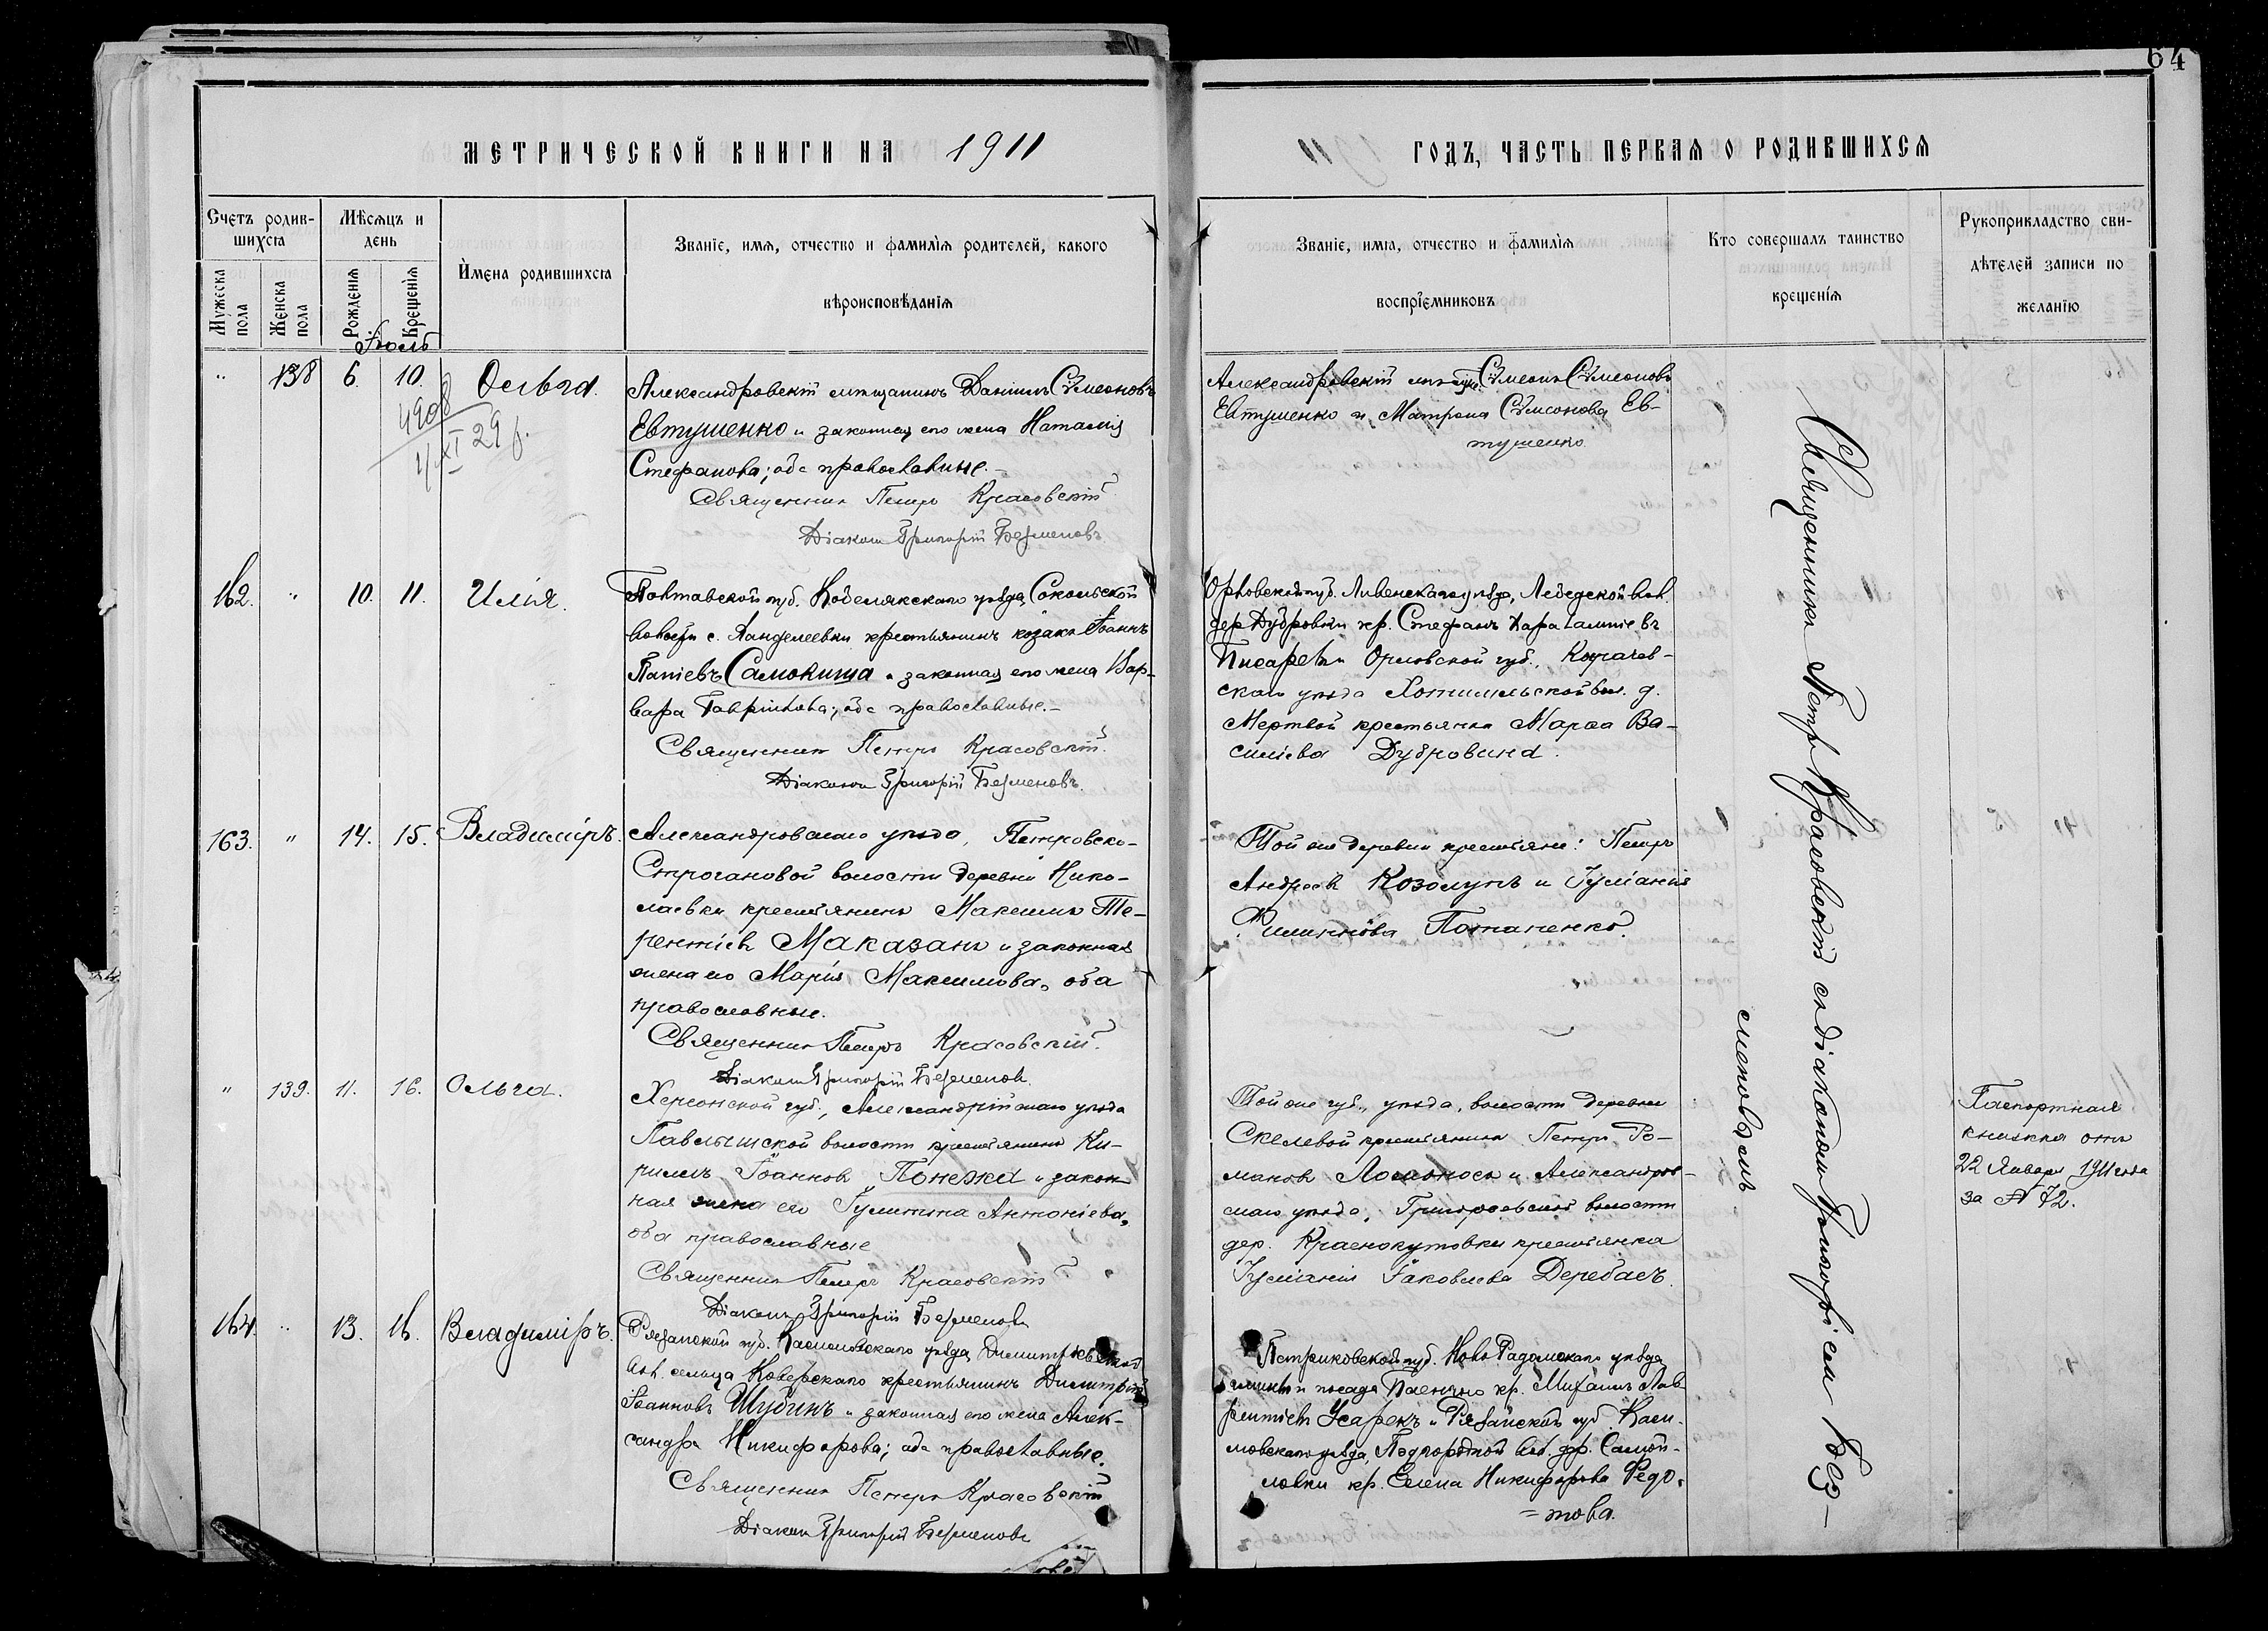 64
МЕТРИЧЕСКОЙ КНИГИ НА 1911
Счетъ родив-
шихся
Мѣсяцъ и
день
Имена родившихся
Званіе, имя, отчество и фамилія родителей, какого
вѣроисповѣданія
Мужеска
пола
Женска
пола
Рожденія
Крещенія
Іюль
" 138 6. 10. Ольга.
4908
Александровскій мѣщанинъ Даніилъ Сѵмеоновъ
Евтушенко и законная его жена Наталія
Стефанова; оба православные.-
Священникъ Петръ Красовскій
Діаконъ Григорій Безменовъ
162. " 10. 11. Илія.
Полтавской губ. Кобелякскаго уѣзда, Сокольской
волости с. Ланделеевки крестьянинъ козакъ Іоаннъ
Самокиша и законная его жена Вар-
вара Гавріилова; оба православные.-
Священникъ Петръ Красовскій.
Діаконъ Григорій Безменовъ.
163. " 14. 15. Владиміръ.
Александровскаго уѣзда, Петровско-
Строгановой волости деревни Нико-
лаевки, крестьянинъ Максимъ Те-
рентіевъ Маказанъ и законная
жена его Марія Максимова, оба
православные.
Священникъ Петръ Красовскій.
Діаконъ Григорій Безменовъ.
" 139. 11. 16. Ольга.
Херсонской губ., Александрійскаго уѣзда
Павлышской волости крестьянинъ Ки-
риллъ Іоанновъ Понежа и закон-
ная жена его Гулитта Антоніева,
оба православные
Священникъ Петръ Красовскій
Діаконъ Григорій Безменовъ
164. " 13. 16. Владиміръ.
Рязанской губ. Касимовскаго уѣзда, Димитріевской
вол. сельца Коверскаго крестьянинъ Димитрій
Іоанновъ Шубинъ и законная его жена Алек-
сандра Никифорова; оба православные.
Священникъ Петръ Красовскій
Діаконъ Григорій Безменовъ
1911 ГОДЪ, ЧАСТЬ ПЕРВАЯ О РОДИВШИХСЯ
Званіе, имя, отчество и фамилія
воспріемниковъ
Кто совершалъ таинство
крещенія
Рукоприкладство сви-
дѣтелей записи по
желанію
Александровскій мѣщан. Сѵмеонъ Сѵмеоновъ
Евтушенко и Матрона Сѵмеонова Ев-
тушенко.
Орловской губ. Ливенскаго уѣзда, Лебедской вол.
дер. Дубровки кр. Стефанъ Харалампіевъ
Писаревъ и Орловской губ., Карачев-
скаго уѣзда Хотимльской вол. д.
Мертвой крестьянка Марѳа Ва-
силіева Дубровина.
Той же деревни крестьяне: Петръ
Андреевъ Козолупъ и Іуліанія
Филиппова Потапенко.
Той же губ., уѣзда, волости деревни
Скелевой крестьянинъ Петръ Ро-
мановъ Ломоносъ и Александров-
скаго уѣзда, Григорьевской волости
дер. Краснокутовки крестьянка
Іуліанія Іаковлева Деребасъ.
Петриковской губ. Ново Радомскаго уѣзда
гмины и посада Паенчно кр. Михаилъ Лав-
рентіевъ Усарекъ и Рязанской губ. Каси-
мовскаго уѣзда, Подгородной вол. дер. Самой-
ловки кр. Елена Никифорова Федо-
=това.
Священникъ Петръ Красовскій съ діакономъ Григоріемъ Без-
меновымъ
Паспортная
книжка отъ
22 Января 1911 года
за № 72.